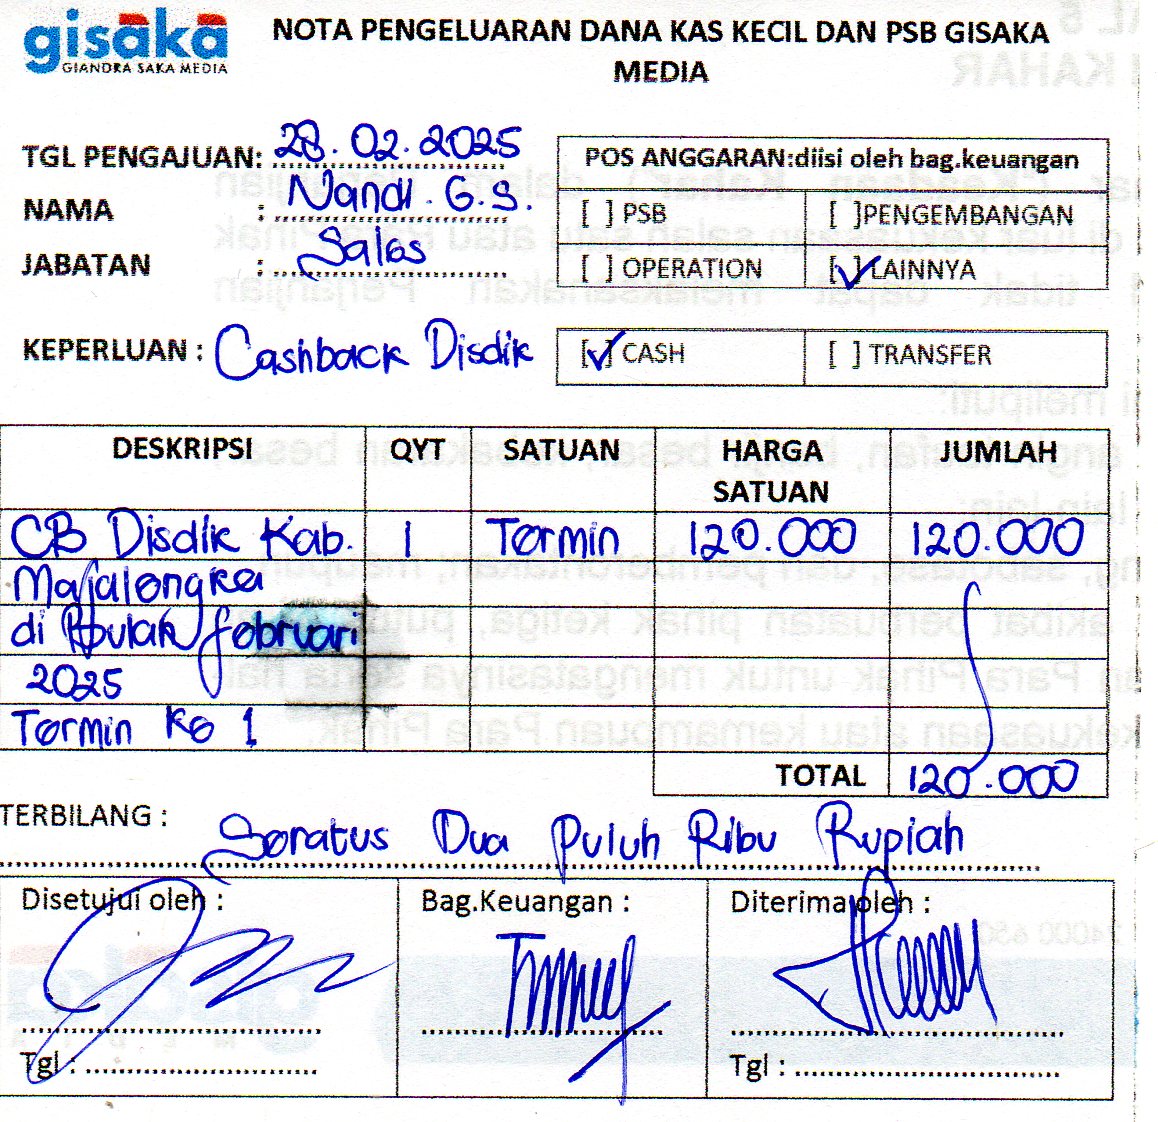 gisaka
GIANDRA SAKA MEDIA
NOTA PENGELUARAN DANA KAS KECIL DAN PSB GISAKA
MEDIA
TGL PENGAJUAN: 28.02.2025
NAMA : Nandi. G.S.
JABATAN : Sales
POS ANGGARAN:diisi oleh bag.keuangan
[ ] PSB [ ]PENGEMBANGAN
[ ] OPERATION [✓]LAINNYA
KEPERLUAN : Cashback Disdik
[✓] CASH [ ] TRANSFER
DESKRIPSI QYT SATUAN HARGA SATUAN JUMLAH
CB Disdik Kab. 1 Termin 120.000 120.000
Majalengka
di Bulan februari
2025
Termin Ke 1
TOTAL 120.000
TERBILANG : Seratus Dua Puluh Ribu Rupiah
Disetujui oleh : Bag.Keuangan : Diterima oleh :
Tgl : Tgl :